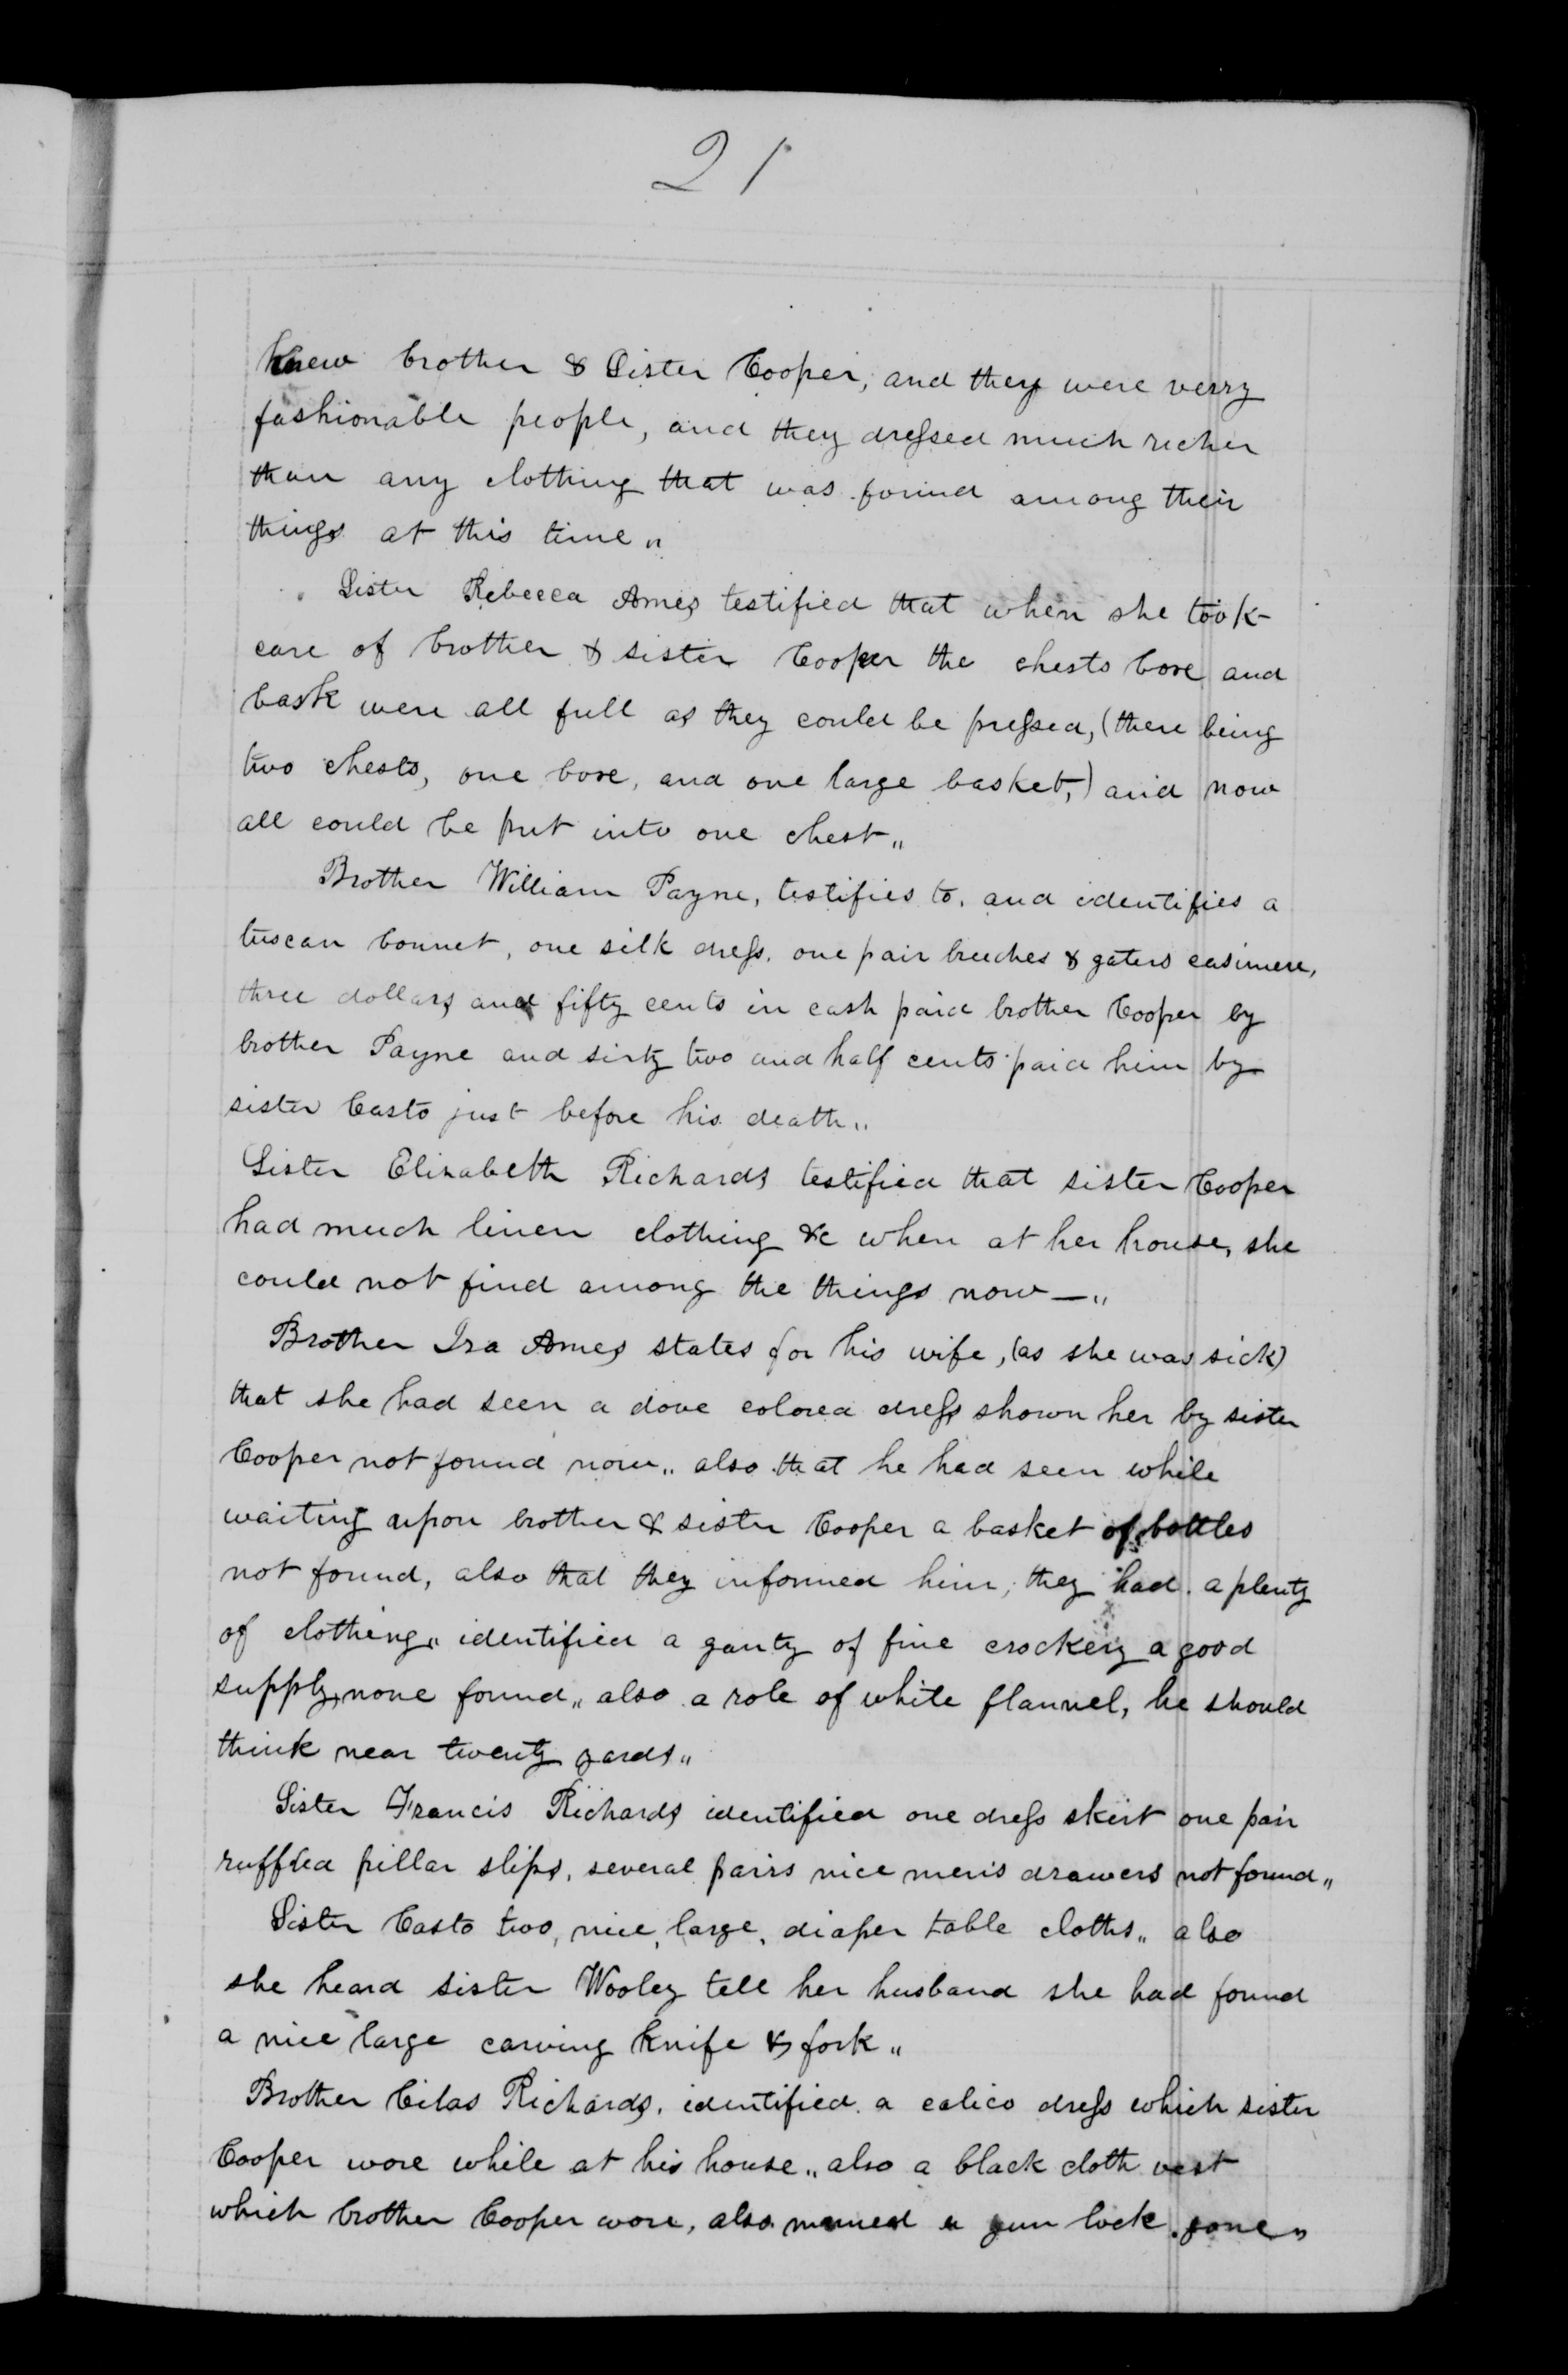 21
knew brother & Sister Cooper, and they were verry
fashionable people, and they dressed much richer
than any clothing that was found among their
things at this time "
Sister Rebecca Ames testified that when she took
care of brother & sister Cooper the chests box and
bask were all full as they could be pressed, (there being
two chests, one box, and one large basket,) and now
all could be put into one chest "
Brother William Payne, testifies to, and identifies a
tuscan bonnet, one silk dress, one pair breeches & gaters casimere,
three dollars and fifty cents in cash paid brother Cooper by
brother Payne and sixty two and half cents paid him by
sister Casto just before his death "
Sister Elizabeth Richards testified that sister Cooper
had much linen clothing &c when at her house, she
could not find among the things now — "
Brother Ira Ames states for his wife, (as she was sick)
that she had seen a dove colored dress shown her by sister
Cooper not found now " also that he had seen while
waiting upon brother & sister Cooper a basket of bottles
not found, also that they informed him, they had a plenty
of clothing " identified a qanty of fine crockery a good
supply, none found " also a role of white flannel, he should
think near twenty yards "
Sister Francis Richards identified one dress skirt one pair
ruffled pillar slips, several pairs nice men's drawers not found "
Sister Casto two, nice, large, diaper table cloths " also
she heard sister Wooley tell her husband she had found
a nice large carving knife & fork "
Brother Cilas Richards, identified a calico dress which sister
Cooper wore while at his house " also a black cloth vest
which brother Cooper wore, also a gun lock gone "